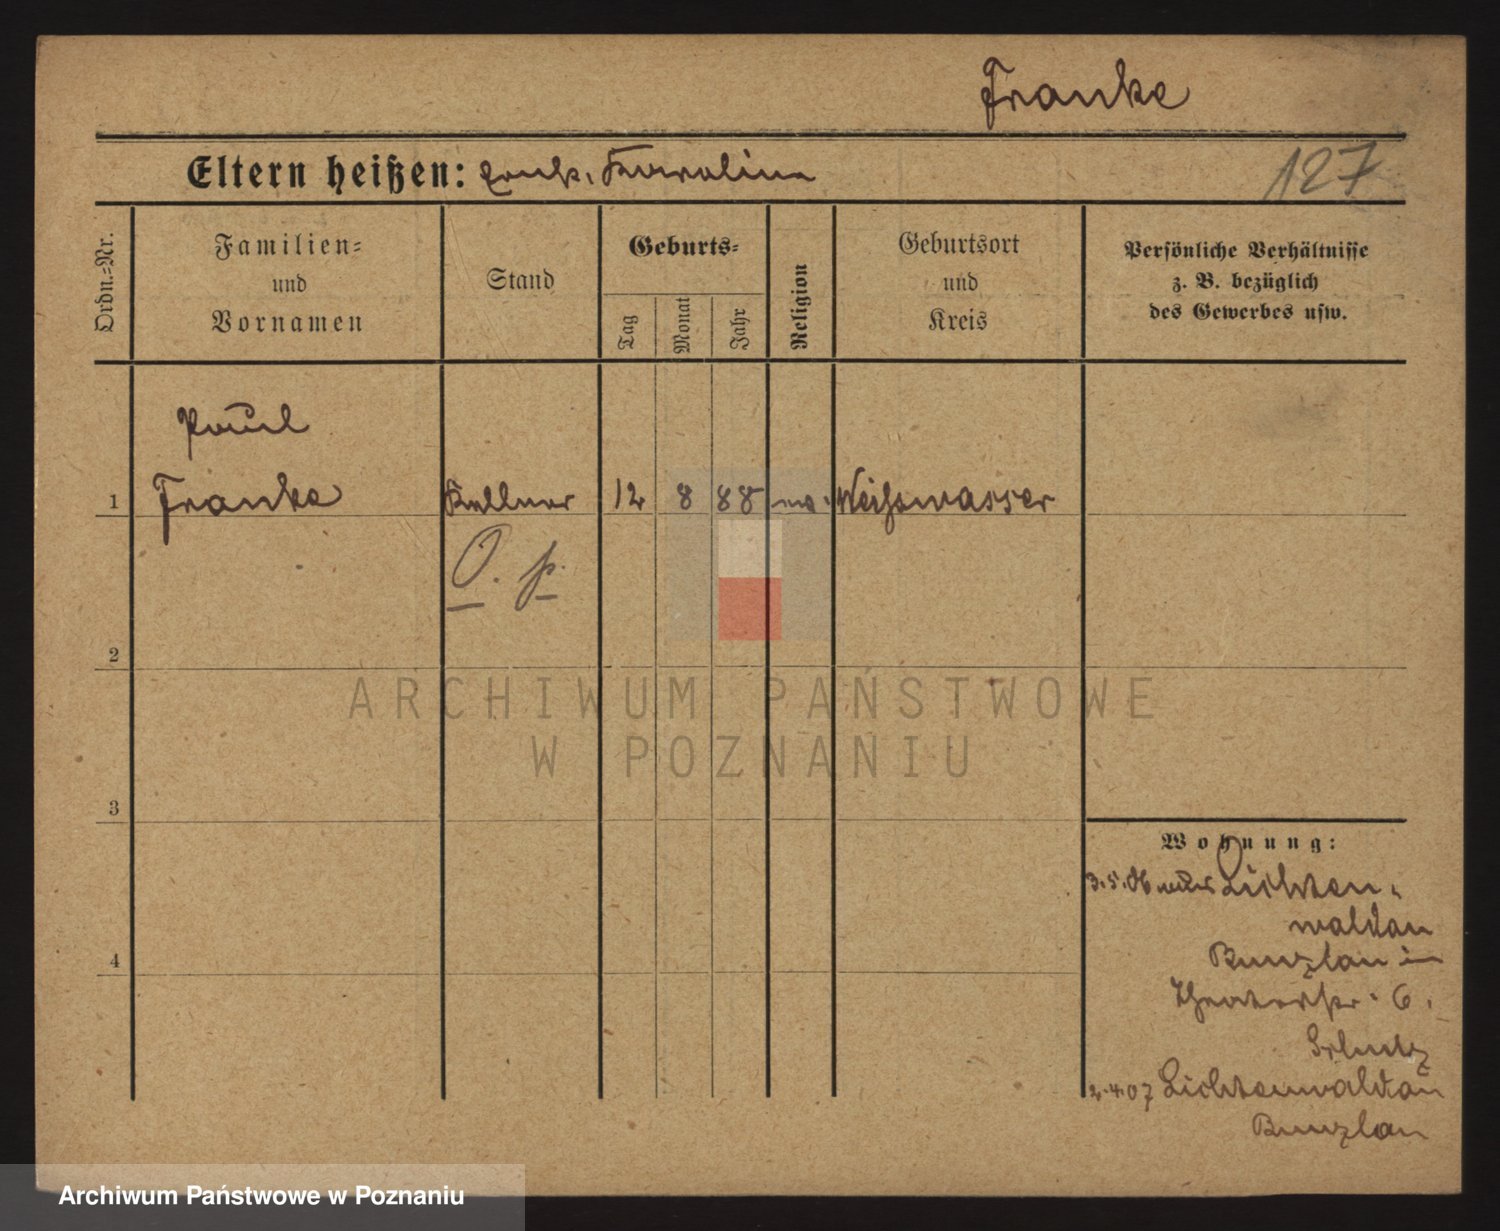 Franke
Eltern heißen: Karoline
127
Ordn.=Nr.
Familien=
und
Vornamen
Stand
Geburts=
Tag
Monat
Jahr
Religion
Geburtsort
und
Kreis
Persönliche Verhältnisse
z. B. bezüglich
des Gewerbes usw.
Paul
1 Franke Kellner 12 8 88 Weißwasser
O. p.
2
ARCHIWUM PAŃSTWOWE
W POZNANIU
3
Wohnung:
3.5.06 Lichten-
waldau
Bunzlau in
Theaterstr. 6.
2.4.07 Lichtenwaldau
Bunzlau
4
Archiwum Państwowe w Poznaniu